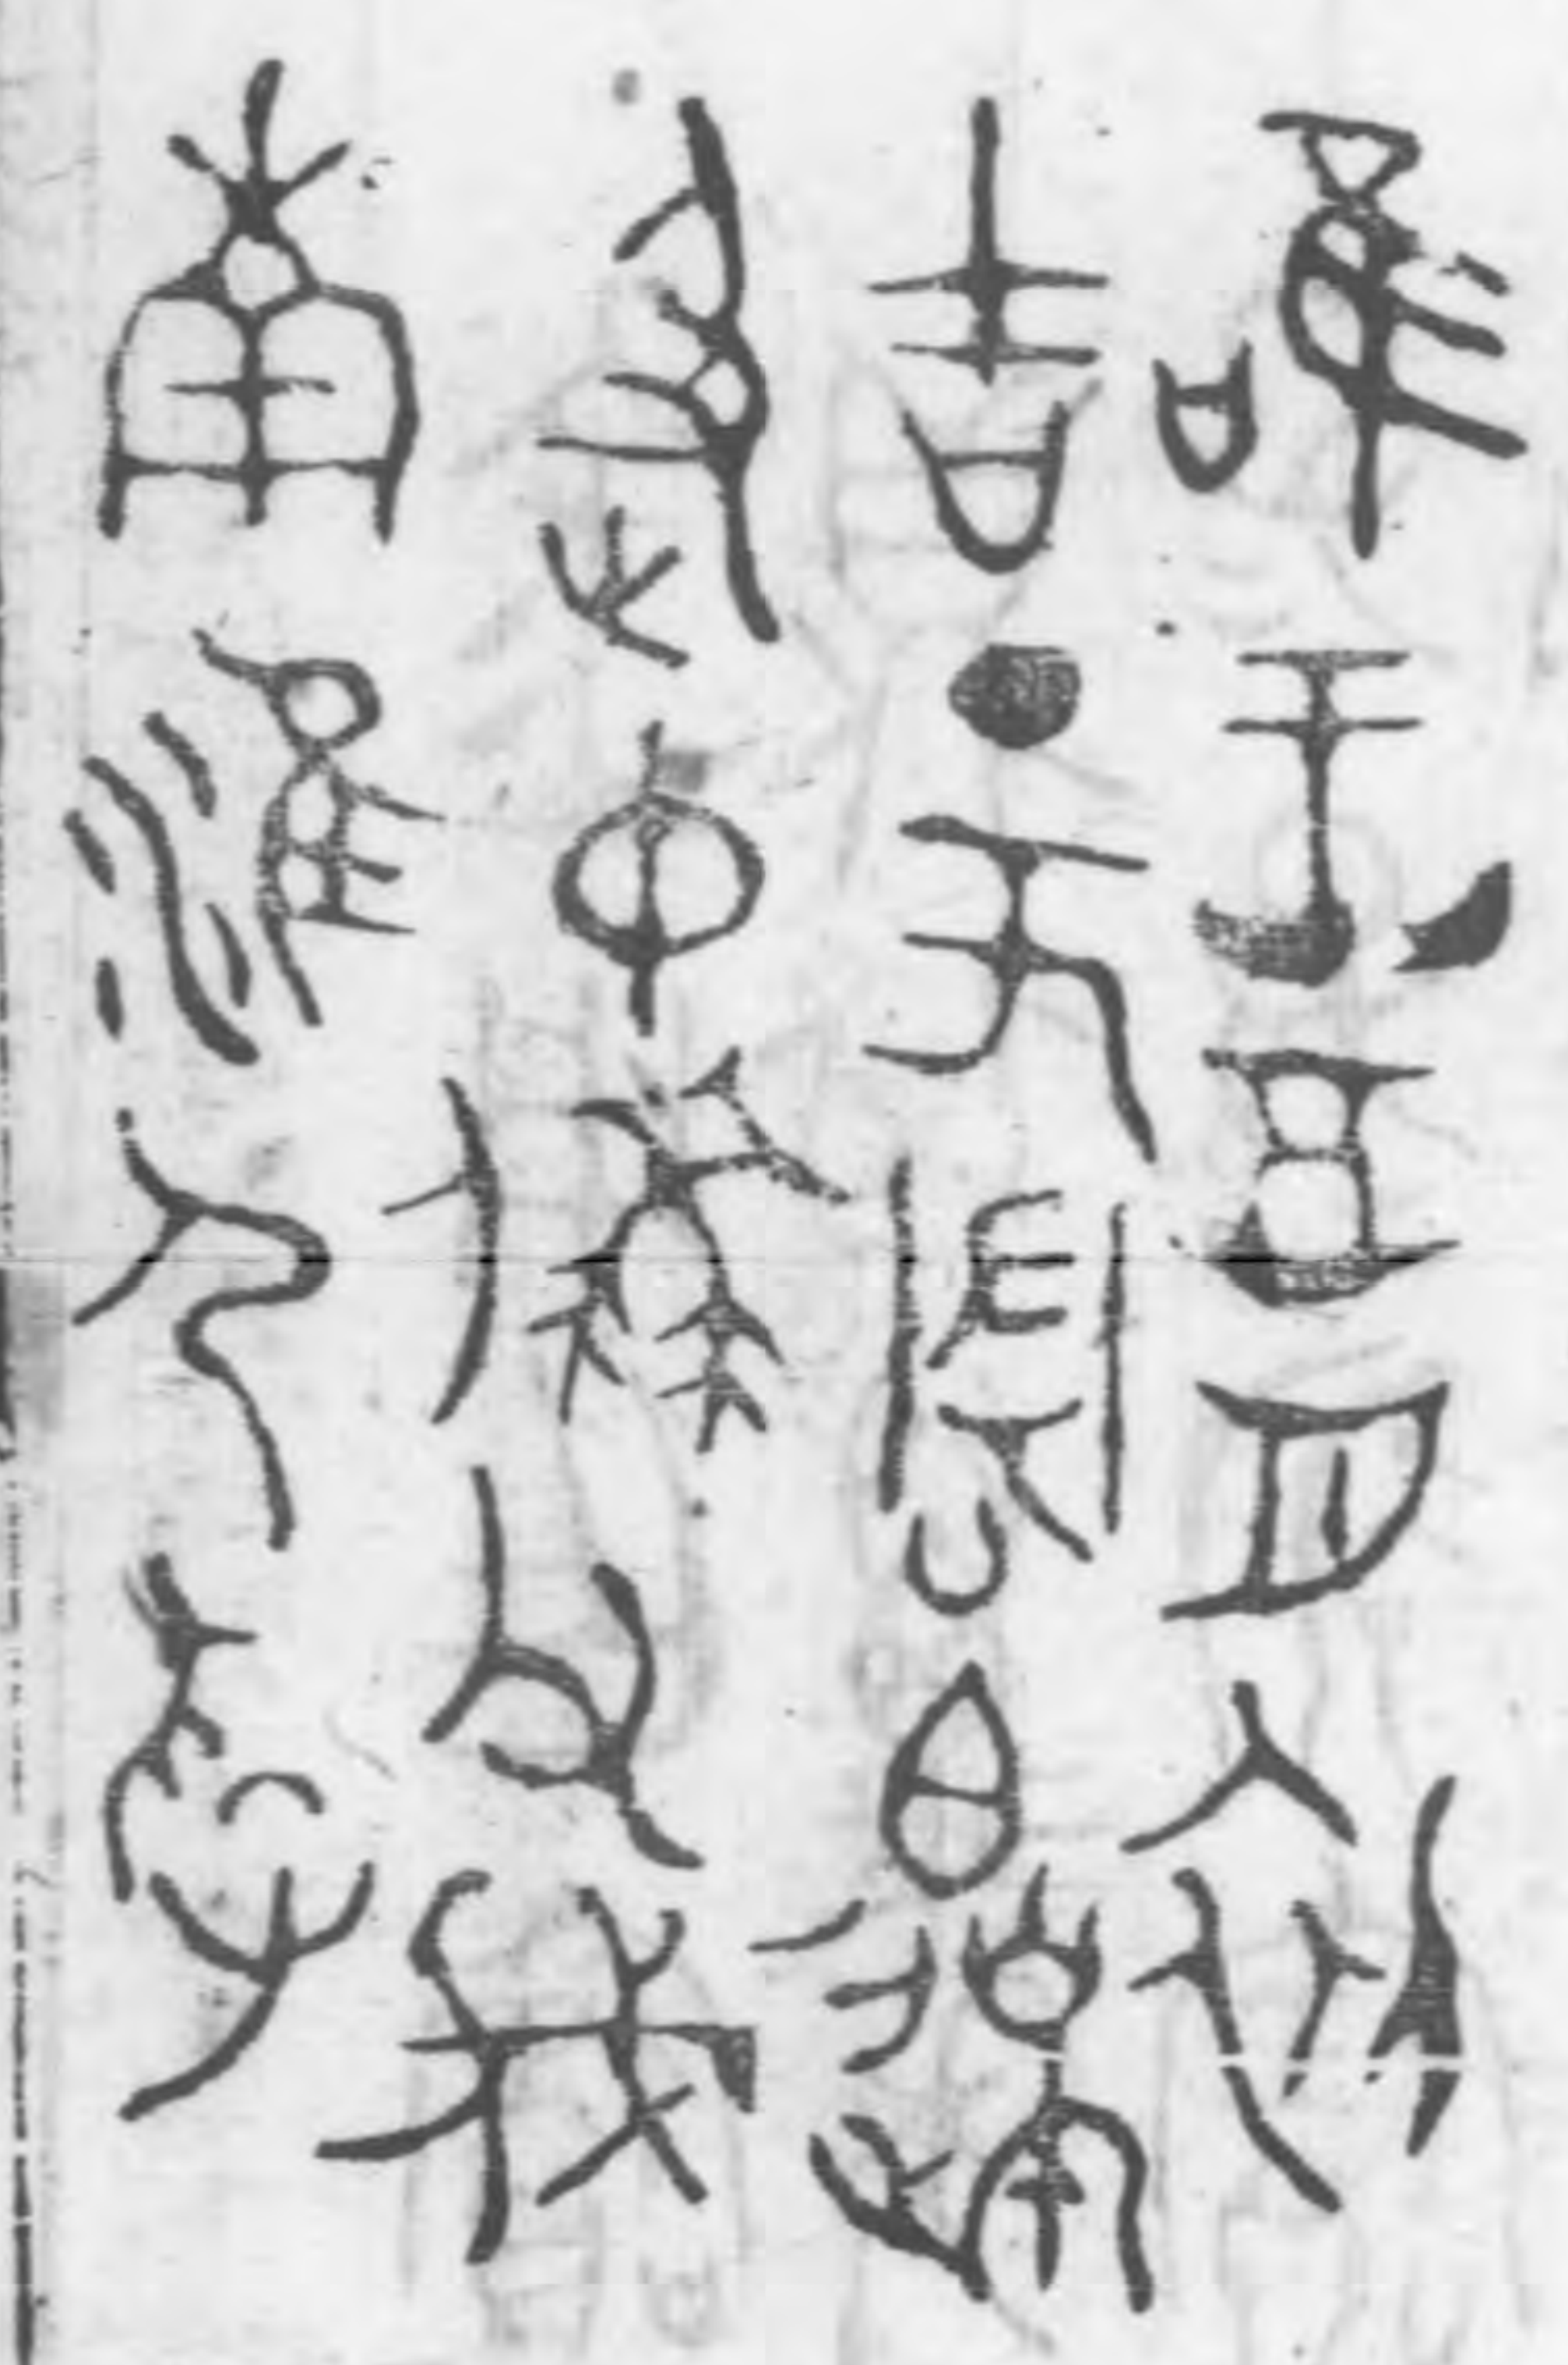 唯王五月初
吉丁亥周伯邊
及仲偯父伐
南淮夷孚